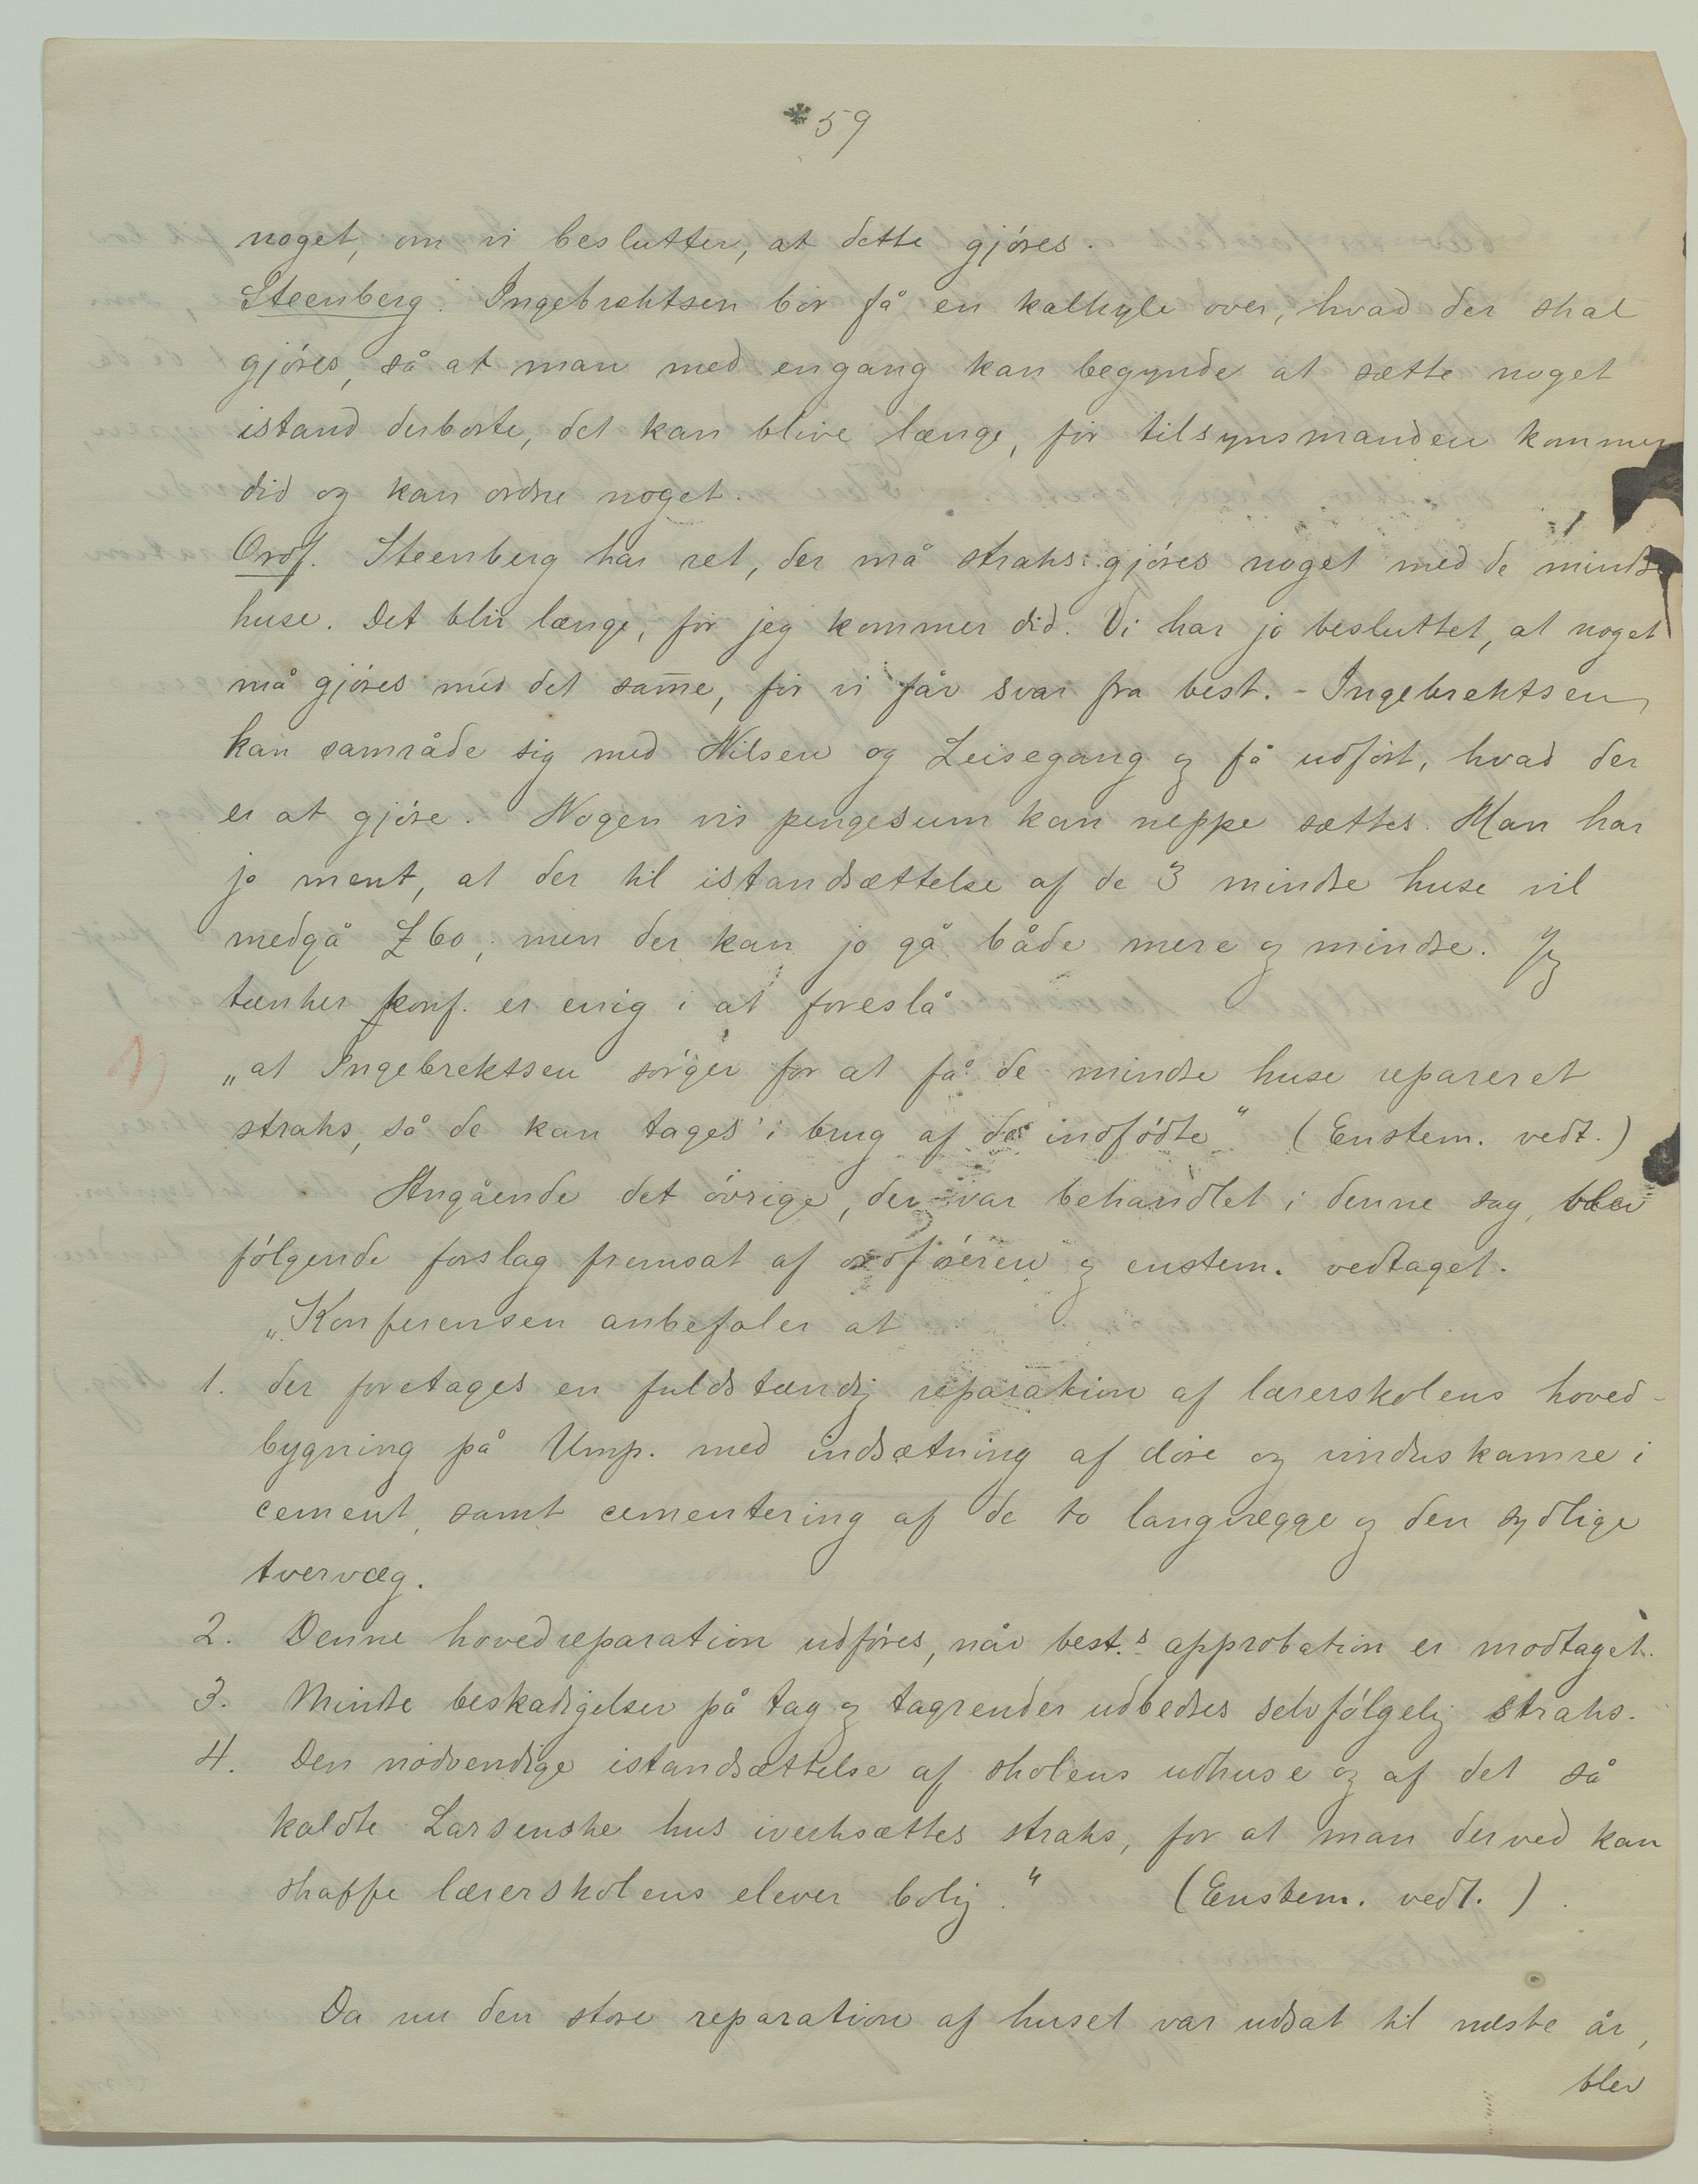 59
noget, om vi beslutter, at dette gjóres.
Steenberg: Ingebrektsen bór få en kalkyle over, hvad der skal
gjóres, så at man med engang kan begynde at sætte noget
istand derborte, det kan blive længe, fór tilsynsmanden kommer
did og kan ordne noget.
Ordf. Steenberg har ret, der må straks gjóres noget med de mindre
huse. Det blir længe, fór jeg kommer did. Vi har jo besluttet, at noget
må gjóres med det sam̅e, fór vi får svar fra best. - Ingebrektsen
kan samråde sig med Nilsen og Leisegang og få udfórt, hvad der
er at gjóre. Nogen vis pengesum kan neppe sættes. Man har
jo ment, at der til istandsættelse af de 3 mindre huse vil
medgå £60, men der kan jo gå både mere og mindre. Jeg
tænker konf. er enig i at foreslå
1)
„at Ingebrektsen sórger for at få de mindre huse repareret
straks, så de kan tages i brug af de indfódte“ (Enstem. vedt.)
Angående det óvrige, der var behandlet i denne sag, blev
fólgende forslag fremsat af ordfóreren og enstem. vedtaget.
„Konferensen anbefaler at
1. der foretages en fuldstændig reparation af lærerskolens hoved-
bygning på Ump. med indsætning af dóre og vinduskarme i
cement, samt cementering af de to langvægge og den sydlige
tvervæg.
2. Denne hovedreparation udfóres, når best.s approbation er modtaget.
3. Mindre beskadigelser på tag og tagrender udbedres selvfólgelig straks.
4. Den nódvendige istandsættelse af skolens udhuse og af det så
kaldte Larsenske hus iverksættes straks, for at man derved kan
skaffe lærerskolens elever bolig.“ (Enstem. vedt.)
Da nu den store reparation af huset var udsat til næste år,
blev